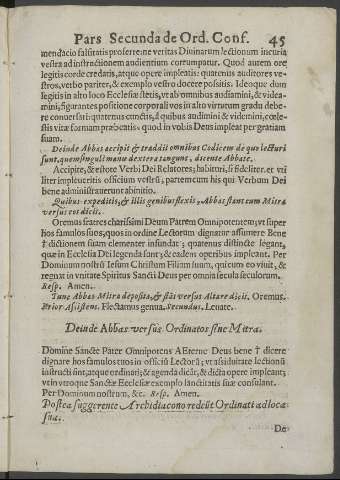 Pars Secunda de Ord. Conf. 45
mendacio falsitatis proferre: ne veritas Divinarum lectionum incuria
vestra ad instructionem audientium corrumpatur. Quod autem ore
legitis corde credatis, atque opere impleatis: quatenus auditores ve-
stros, verbo pariter, & exemplo vestro docere possitis. Ideoque dum
legitis in alto loco Ecclesiæ stetis, ut ab omnibus audiamini, & videa-
mini, figurantes positione corporali vos in alto virtutum gradu debe-
re conversari: quatenus cunctis, à quibus audimini & videmini, cœle-
stis vitæ formam præbeatis: quod in vobis Deus impleat per gratiam
suam.
Deinde Abbas accipit & tradit omnibus Codicem de quo lecturi
sunt, quem singuli manu dextera tangunt, dicente Abbate.
Accipite, & estote Verbi Dei Relatores; habituri, si fideliter, et vti
liter impleveritis officium vestrū, partem cum his qui Verbum Dei
bene administraverunt ab initio.
Quibus expeditis, & illis genibus flexis, Abbas stans cum Mitra
versus eos dicit.
Oremus fratres charissimi Deum Patrem Omnipotentem; vt super
hos famulos suos, quos in ordine Lectorum dignatur assumere Bene
† dictionem suam clementer infundat; quatenus distincte legant,
quæ in Ecclesia Dei legenda sunt; & eadem operibus impleant. Per
Dominum nostrū Iesum Christum Filium suum, qui cum eo vivit, &
regnat in vnitate Spiritus Sancti Deus per omnia secula seculorum.
Resp. Amen.
Tunc Abbas Mitra deposita, & stās versus Altare dicit. Oremus.
Prior Assistens. Flectamus genua. Secundus. Levate.
Deinde Abbas versus Ordinatos sine Mitra.
Domine Sancte Pater Omnipotens AEterne Deus bene † dicere
dignare hos famulos tuos in officiū Lectorū; vt assiduitate lectionū
instructi sint, atque ordinati; & agenda dicāt, & dicta opere impleant;
vt in vtroque Sanctæ Ecclesiæ exemplo sanctitatis suæ consulant.
Per Dominum nostrum, &c. Resp. Amen.
Postea suggerente Archidiacono redeūt Ordinati ad loca
sua.
De